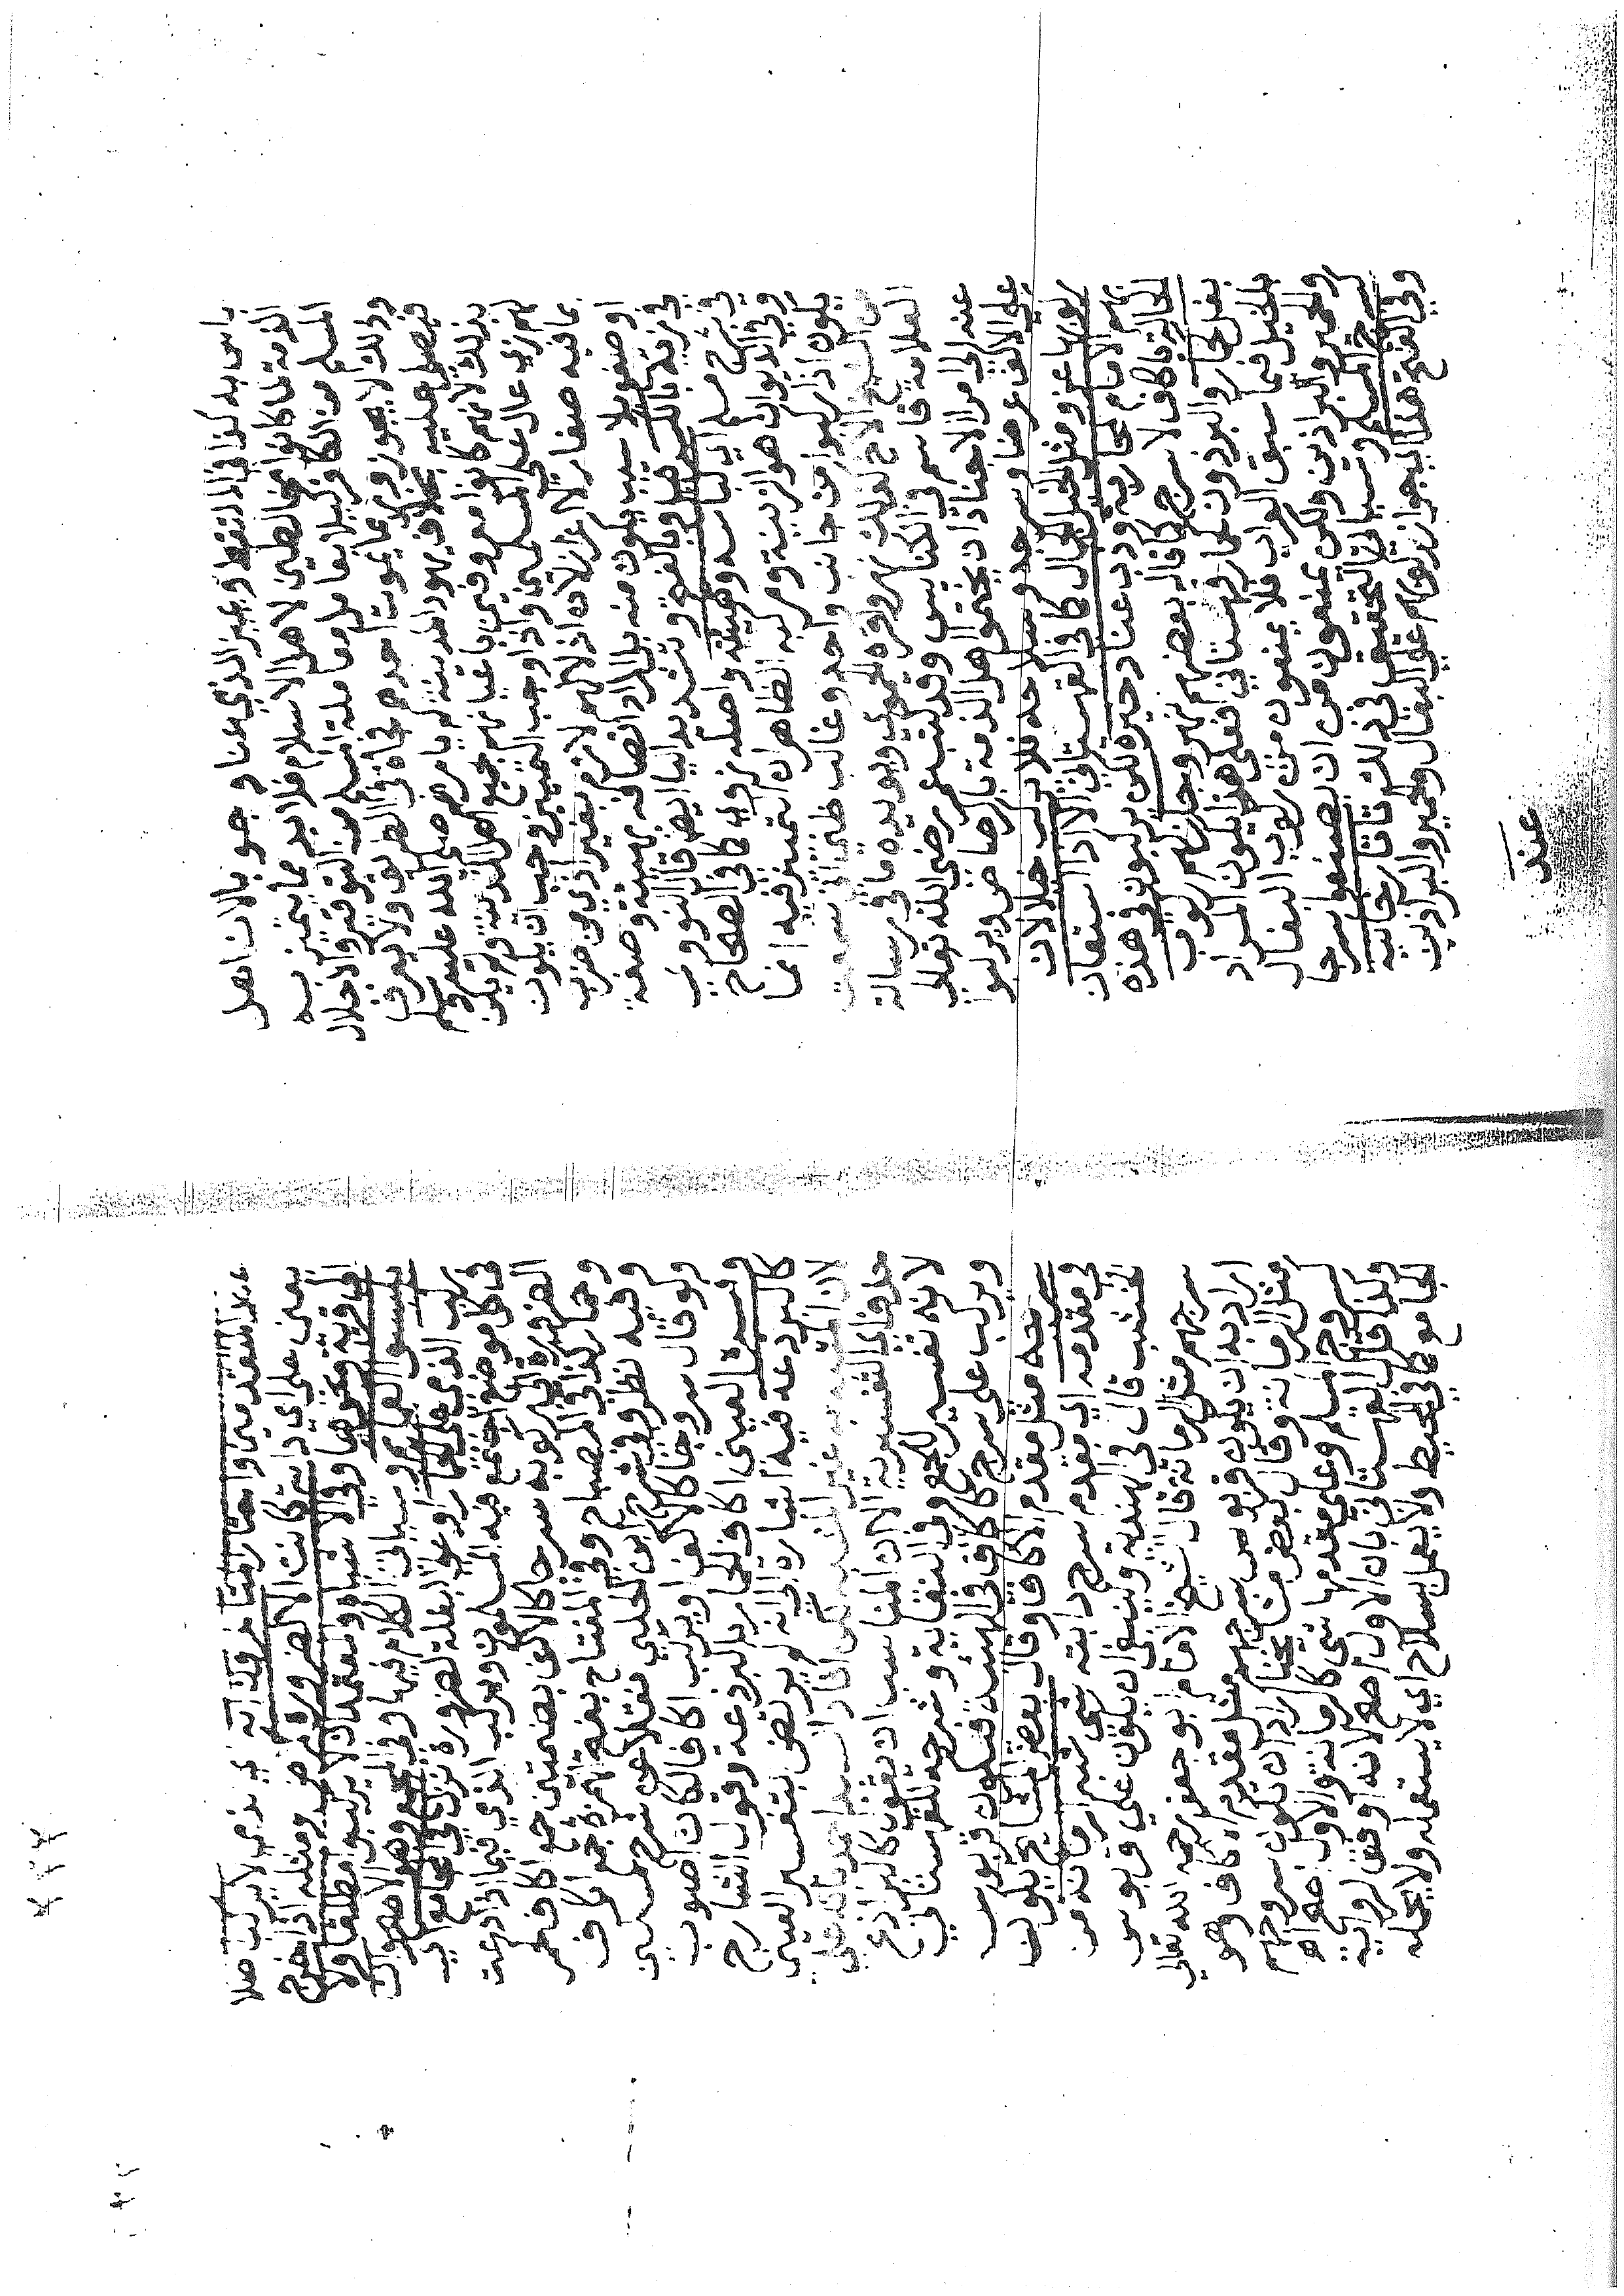 باس به كذا في الملتقط وعبر الذي عنا وجو بالان اهل
الذمة لما كانوا مخالطين لاهل الاسلام فلا بد مما يتميز به
المسلم من الكافر كيلا يعامل معاملة المسلم من التوقير والاجلال
وذلك لا يجوز وربما يموت احدهم فجاة في الطريق ولا يعرف
فيصلى عليه بخلاف يهود المدينة لم يامرهم صلى الله عليه وسلم
بذلك لانهم كانوا معروفين باعيانهم لجميع اهل المدينة ولم يكن
لهم زي عال على المسلمين واذا وجب التمييز وجب ان يكون
بما فيه صغار لا اعزاز لان اذلالهم لازم بغير اذي من ضرب
او صفع بلا سبب يكون منه بل المراد اتصافه بهيئة وضعة
في زيه بالكسر وبالفتح وتشديد اليا ايضا قال النووي
في شرح مسلم اي لباسه وهيئته واصله زوي كما في الصحاح
وفي الديوان هو الزينة ومركبه الظاهر ان التمييز فيه انما
يكون اذا ركبوا من جانب واحد وغالب ظني اني سمعت
من الشيخ الاخ كذلك نهر واقره الحموي ويويده ما في رسالة
العلامة قاسم في الكنايس وقد كتب عمر رضي الله تعالى
عنه الى امراء الاجناد ان يختموا اهل الذمة بالرصاص ويركبوا
على الاكف عرضا وسرجه وسلاحه فلا يركب خيلا لان
ركوبها عز ومثل الخيل الجمال كما في القهستاني الا اذا استعان
بهم الامام لمحاربة وذب عنا ذخيره لكن يركبون في هذه
الحالة باكاف لا سرج كما قاله بعضهم نهر وجاز لهم ركوب
بغل كحمار والبرذون كحمار قهستاني فعلى هذا يكون المراد
بالخيل فيما سبق العراب فلا يمنعون من ركوب البغال
والحمير والبراذين ولكن يمنعون من ان يصنعوا سرجا
كسرج المسلم وسياتي التحقيق في ذلك تاتارخانيه
وفي الفتح هذا الجواز ركوبهم على البغال والحمير والبراذين
عند
عند المتقدمين واختار المتاخرون انه اي الذمي لا يركب اصلا
يعني على اي دابة كانت الا لضرورة كمرض ومثله اذا خرج
الى قرية ونحوها وفي الاشباه والمعتمد ان لا يركبوا مطلقا ولا
يلبسوا العمايم وسياتي الكلام فيها وفي المجمع وهو الاصح وان
ركب الذمي الحمار او على البغلة لضرورة نزل في المجامع اي
في كل موضع اجتمع فيه المسلمون ويركب الذي فيما اذا دعت
الضرورة الى ركوبه سرجا كالاكف بضمتين جمع اكاف كحمر
وحمار كذا في المصباح وفي المفتاح بفتح الهمزة جمع اكاف
وفيه نظر وفي شرح ابن الحلبي نقلا عن شرح المسكين
ولو قال سروجا كالاكف او يركب اكاف الكان اصوب
وفسره العيني اكاف الحمار بالبرذعة وقول الشارح
كالبرذعة فيه اشارة الى انه لم يرتض بتفسير العيني
لان المشبه غير المشبه به لكن افاد السيد احمد بان على
حذف اي التفسيرية الا ان المناسب ان تقول كالبراذع
لانه تفسير للجمع وفي النقاية وشرحه للقهستاني
ويركب على سرج كاكاف في الهيئة فيكون قربوس
سرجه مثل مقدم الاكاف وقال بعض المشايخ يكون
في مقدمه اي مقدم سرج دابته شي شبه رمانة من
الخشب قال في الهندية وينبغي ان يكون على قربوس
سرجهم مثل الرمانة قال الشيخ الامام ابو جعفر رحمه الله تعالى
اراد به ان يكون قربوس سرجهم مثل مقدم الاكاف وهو
مثل الرمانة وقال بعض مشايخنا اراد ان تكون سروجهم
كسروج المسلم وعلى مقدمها شي كالرمانة والاول اصح اه
وكذا قال القهستاني بان الاول اصح لانه اوفق لرواية
الجامع كما في المحيط ولا يعمل بسلاح اي لا يستعمله ولا يحمله